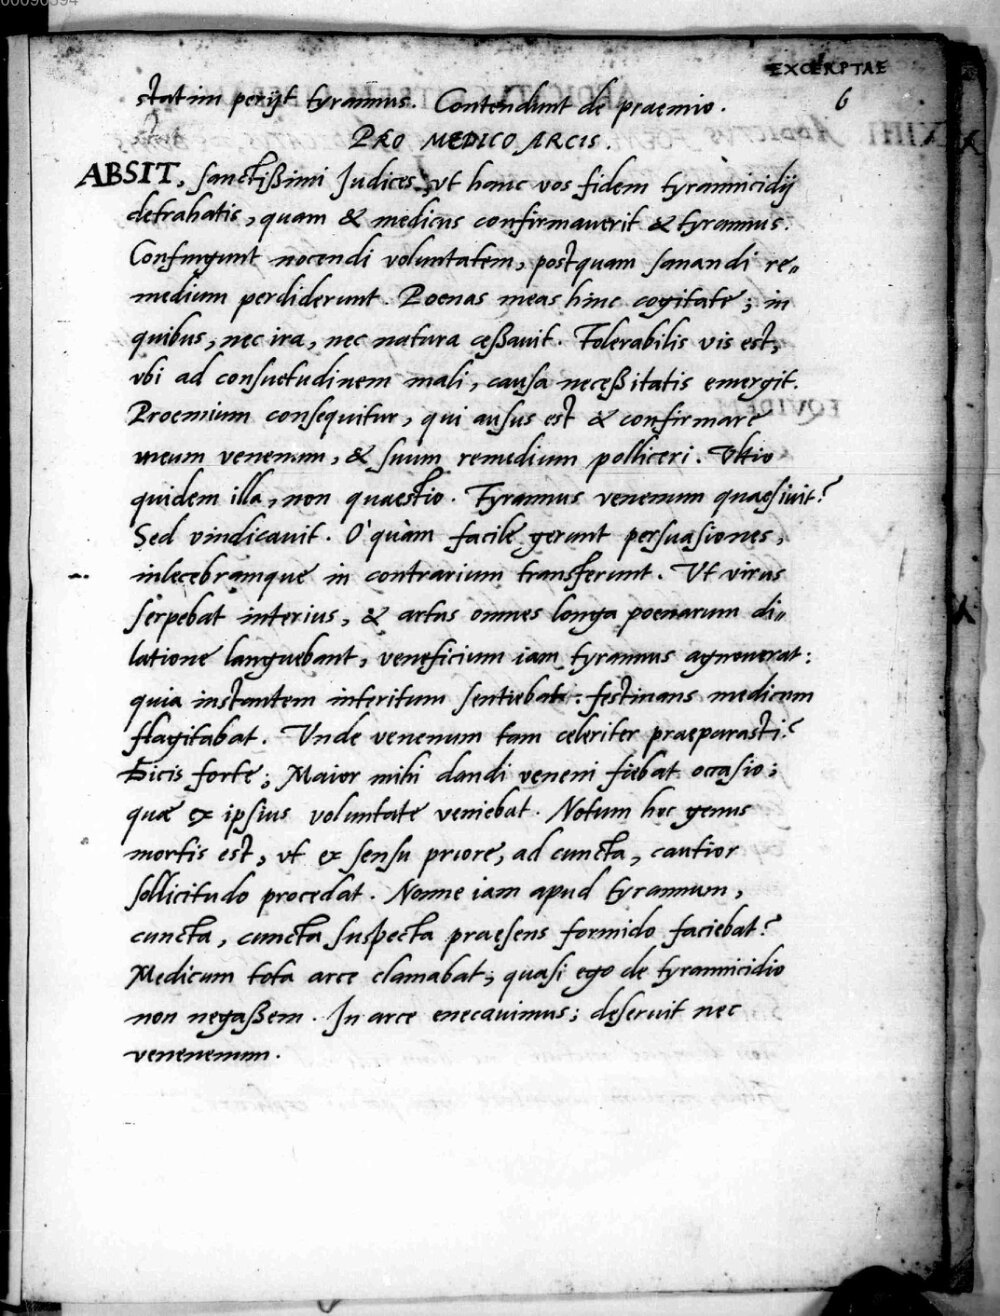 00090394
EXCERPTAE
6
statim perijt tyrannus. Contendunt de praemio.
PRO MEDICO ARCIS.
ABSIT, sanctißimi Judices, vt hanc vos fidem tyrannicidij
detrahatis, quam & medicus confirmauerit & tyrannus.
Confingunt nocendi voluntatem, postquam sanandi re„
medium perdiderunt. Poenas meas hinc cogitate; in
quibus, nec ira, nec natura ceßauit. Tolerabilis vis est,
vbi ad consuetudinem mali, causa neceßitatis emergit.
Proemium consequitur, qui ausus est & confirmare
meum venenum, & suum remedium polliceri. Vltio
quidem illa, non quaestio. Tyrannus venenum quaesiuit?
Sed vindicauit. O' quàm facile gerunt persuasiones,
inlecebramque in contrarium transferunt. Vt virus
serpebat interius, & artus omnes longa poenarum di„
latione languebant, veneficium iam tyrannus agnouerat:
quia instantem interitum sentiebat: festinans medicum
flagitabat. Vnde venenum tam celeriter praeparasti?
Dicis forte; Maior mihi dandi veneni fiebat occasio;
quae ex ipsius voluntate veniebat. Notum hoc genus
mortis est, vt ex sensu priore, ad cuncta, cautior
sollicitudo procedat. Nonne iam apud tyrannum,
cuncta, cuncta suspecta praesens formido faciebat?
Medicum tota arce clamabat; quasi ego de tyrannicidio
non negaßem. In arce enecauimus; deseruit nec
venenenum.